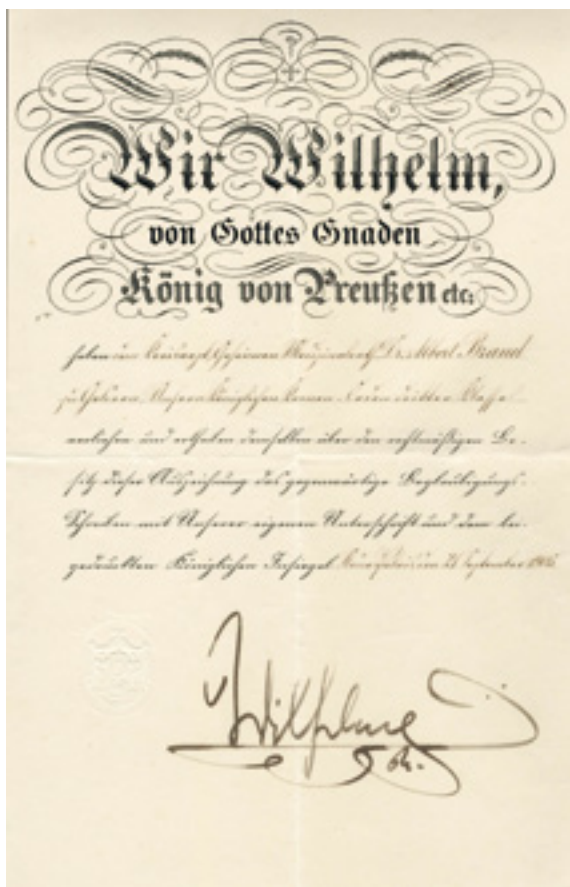 Wir Wilhelm,
von Gottes Gnaden
König von Preußen etc:
haben dem Geheimen Dr. Albert Brand
zu Unsern Königlichen Kronen-Orden dritter Klasse
verliehen und ertheilen demselben über den rechtmäßigen Be-
sitz dieser Auszeichnung das gegenwärtige Beglaubigungs-
Schreiben mit Unserer eigenen Unterschrift und dem bei-
gedruckten Königlichen Insiegel September
Wilhelm
R.